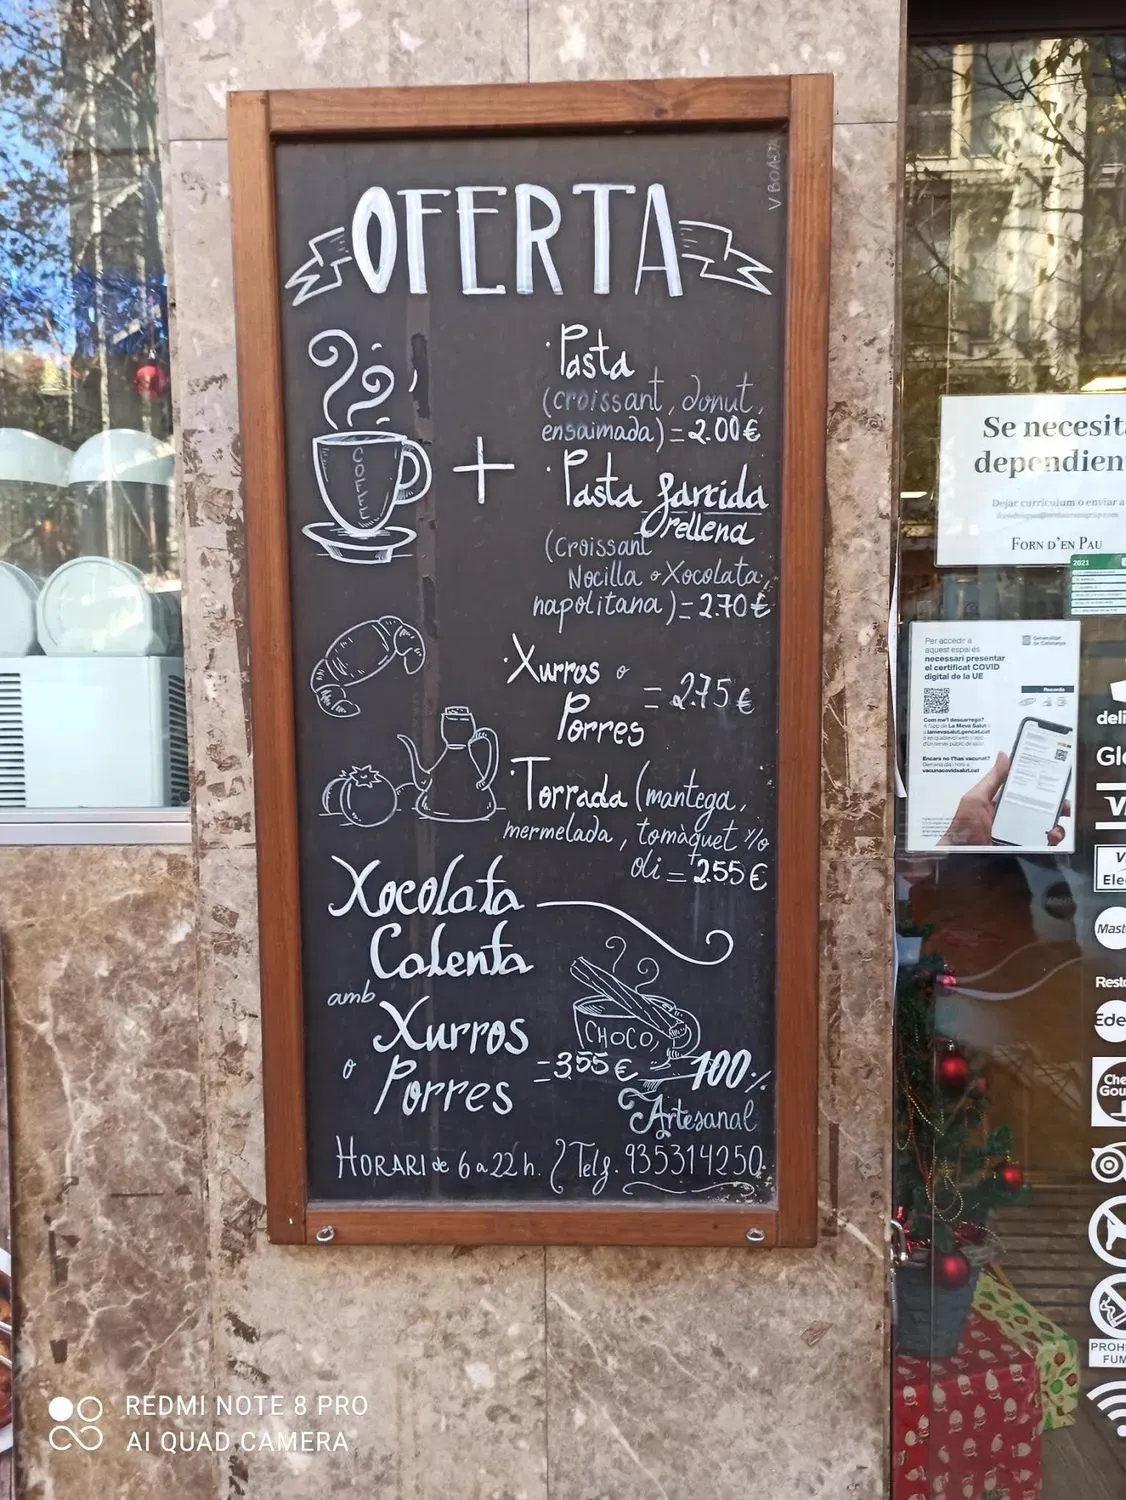 V BOARD
OFERTA
COFFEE
+
· Pasta
(croissant, donut,
ensaimada) = 2.00€
· Pasta farcida
o rellena
(Croissant
Nocilla o Xocolata,
napolitana) = 2.70€
· Xurros o
Porres
= 2.75€
· Torrada (mantega,
mermelada, tomàquet i/o
oli = 2.55€
Xocolata
Calenta
amb
Xurros
o Porres
= 3.55€
CHOCO
100%
Artesanal
HORARI de 6 a 22 h.
Telf. 935314250
Se necesit
dependien
Dejar curriculum o enviar a
FORN D'EN PAU
2021
Per accedir a
aquest espai és
necessari presentar
el certificat COVID
digital de la UE
Generalitat
de Catalunya
Recorda
Com me'l descarrego?
A l'app de La Meva Salut o
a lamevasalut.gencat.cat
Encara no t'has vacunat?
vacunacovidsalut.cat
deli
Glo
V
Elec
Mast
Resto
Ede
Che
Gou
PROH
FUM
REDMI NOTE 8 PRO
AI QUAD CAMERA